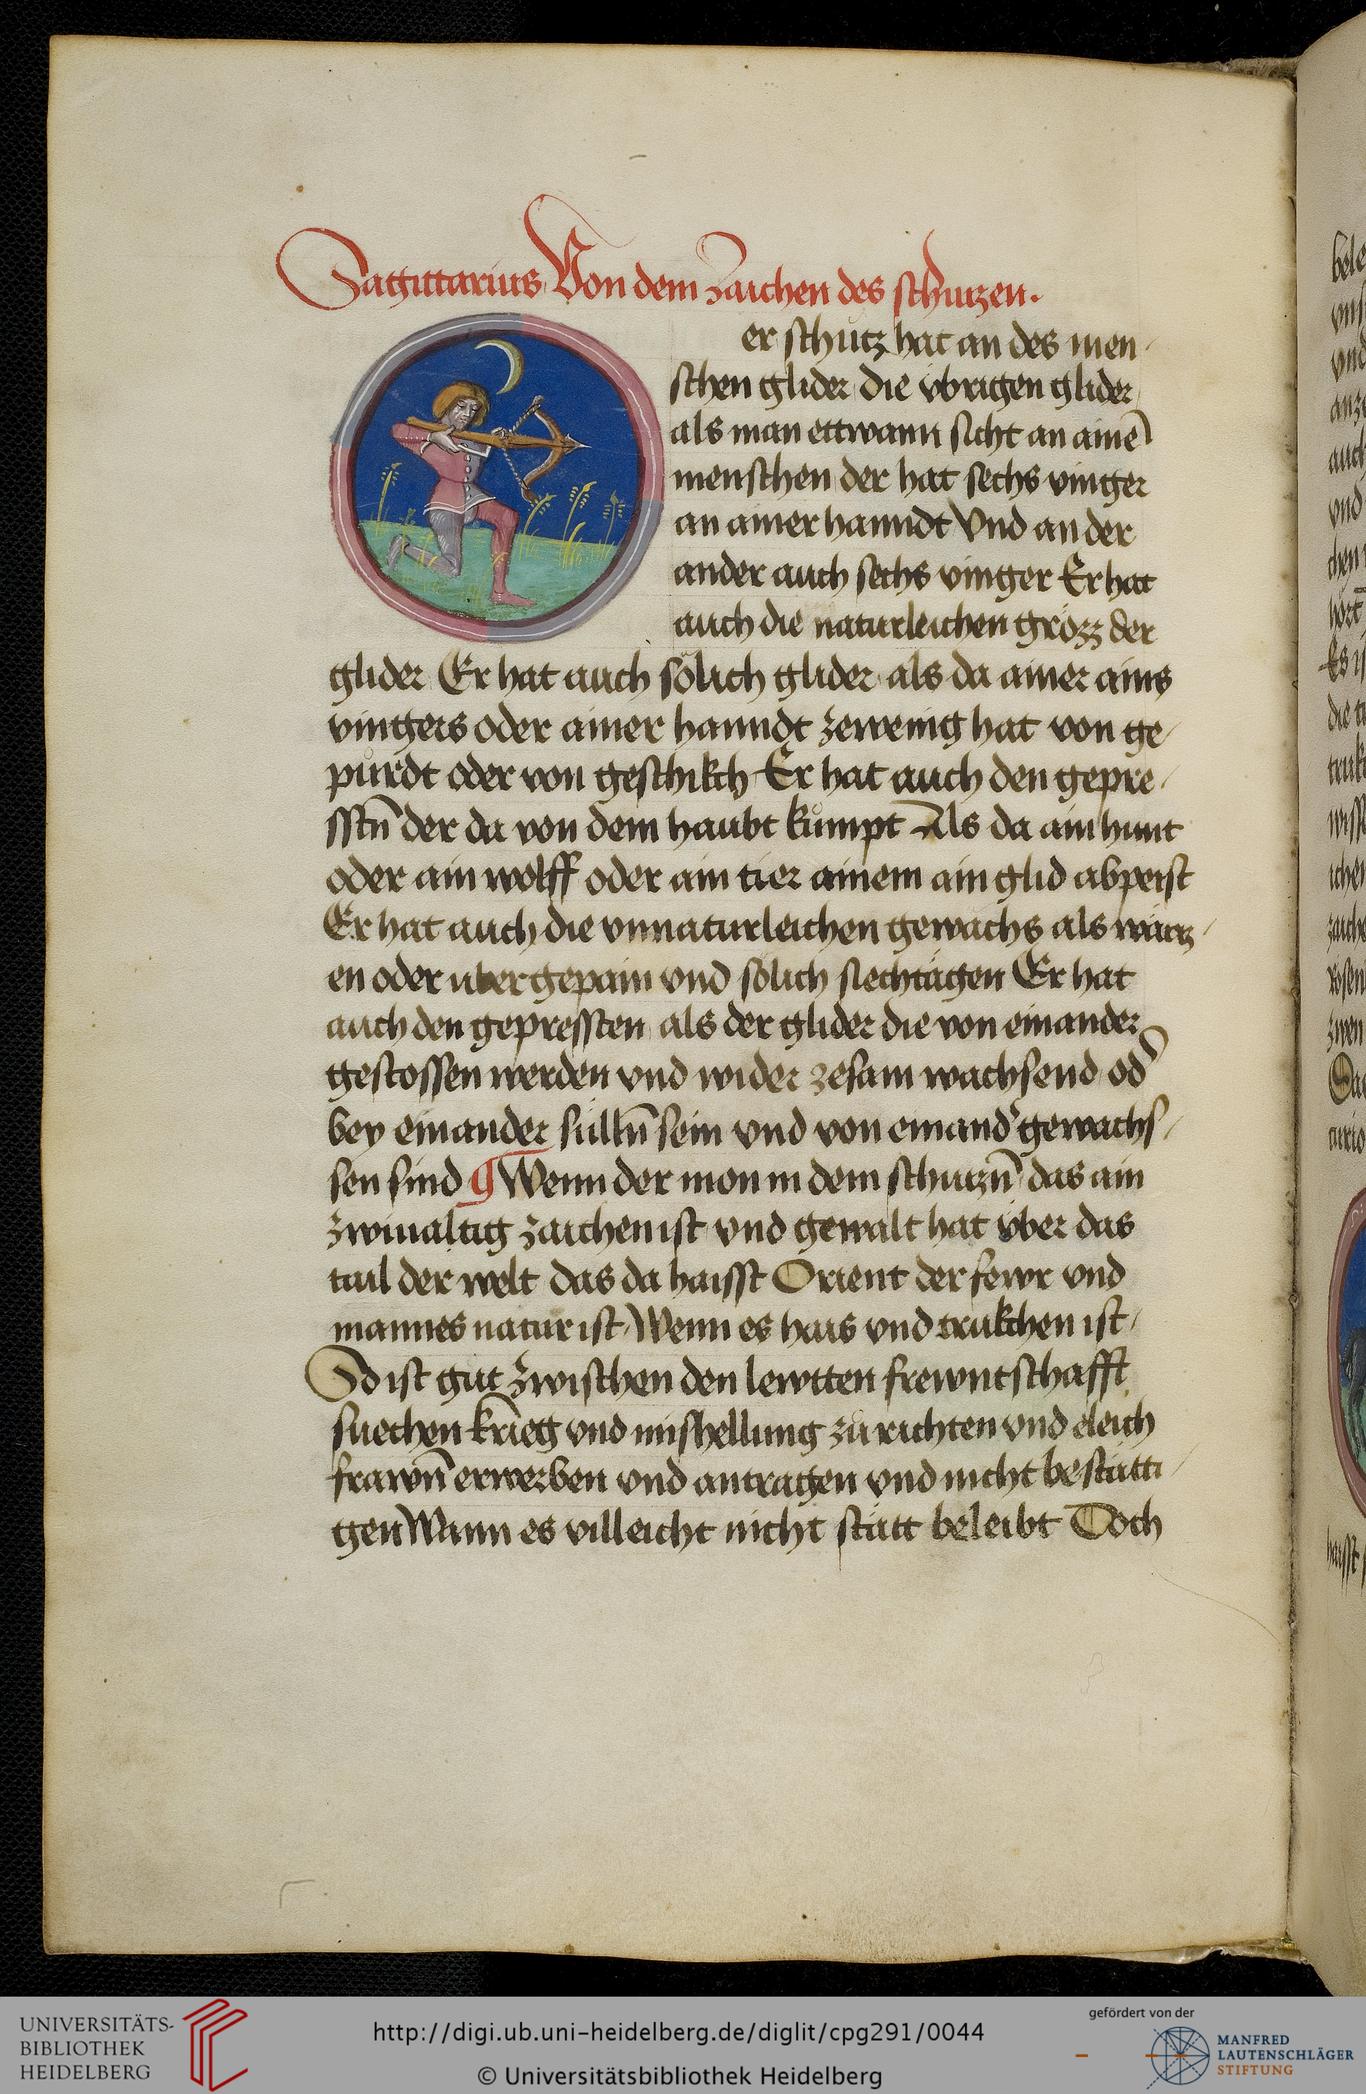 Sagittarius Von dem zaichen des schutzen.
er schütz hat an des men
schen glider die vbrigen glider
als man ettwann sicht an ainē
menschen der hat sechs vinger
an ainer hanndt Vnd an der
ander auch sechs vinger Er hat
auch die naturleichen grözz der
glider Er hat auch sölich glider als da ainer ains
vingers oder ainer hanndt zewenig hat von ge
pürdt oder von geschikch Er hat auch den gepre
sstn̄ der da von dem haubt kůmpt Als da ain hunt
oder ain wolff oder ain tier ainem ain glid abpeist
Er hat auch die vnnaturleichen gewächs als wärcz
en oder übergepain vnd sölich siechtägen Er hat
auch den gepressten als der glider die von einander
gestossen werden vnd wider zesam wachsend od̄
bey einander sülln̄ sein vnd von einand' gewachs
sen sind ¶ Wenn der mon in dem schutzn̄ das ain
zwiualtig zaichen ist vnd gewalt hat über das
tail der welt das da haisst Orient der fewr vnd
mannes natur ist Wenn es hais vnd trukchen ist
So ist gut zwischen den lewtten frewntschafft
suechen krieg vnd mishellung zu richten vnd eleich
frawn̄ erwerben vnd antragen vnd nicht bestätti
gen Wann es villeicht nicht stätt beleibt Doch
UNIVERSITÄTS-
BIBLIOTHEK
HEIDELBERG
http://digi.ub.uni-heidelberg.de/diglit/cpg291/0044
© Universitätsbibliothek Heidelberg
gefördert von der
MANFRED
LAUTENSCHLÄGER
STIFTUNG